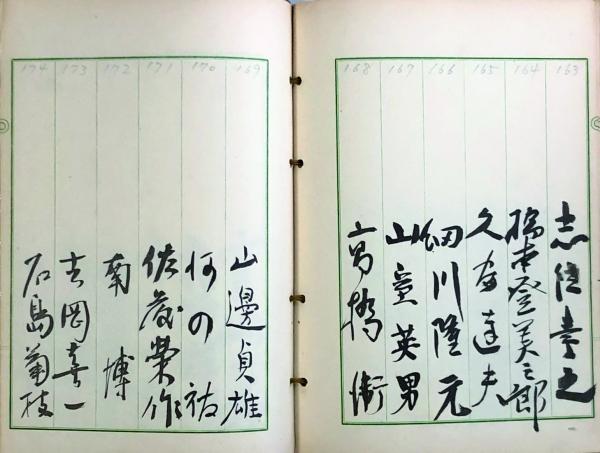 163
志 之
164
橋本登美三郎
165
久富達夫
166
細川隆元
167
山室英男
168
高橋
169
山邊貞雄
170
171
佐藤榮作
172
南 博
173
吉岡喜一
174
石島菊枝